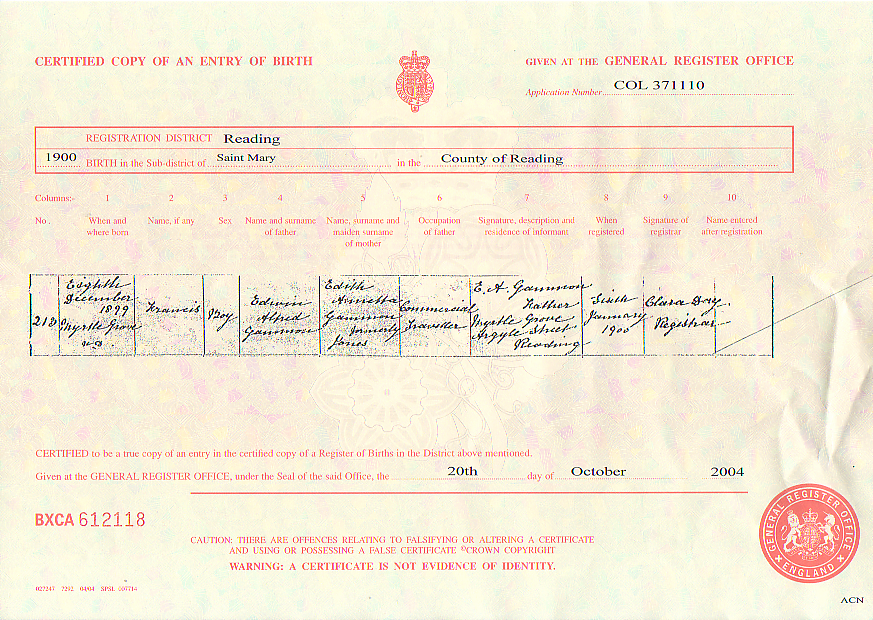 CERTIFIED COPY OF AN ENTRY OF BIRTH
GIVEN AT THE GENERAL REGISTER OFFICE
Application Number COL 371110
REGISTRATION DISTRICT Reading
1900 BIRTH in the Sub-district of Saint Mary in the County of Reading
Columns:- 1 2 3 4 5 6 7 8 9 10
No. When and where born Name, if any Sex Name and surname of father Name, surname and maiden surname of mother Occupation of father Signature, description and residence of informant When registered Signature of registrar Name entered after registration
213
Eighth
December
1899
Myrtle Grove
Francis
Boy
Edwin
Alfred
Gammon
Edith
Annetta
Gammon
formerly
Jones
Commercial
Traveller
E. A. Gammon
Father
Myrtle Grove
Argyle Street
Reading
Sixth
January
1900
Clara Day
Registrar
CERTIFIED to be a true copy of an entry in the certified copy of a Register of Births in the District above mentioned.
Given at the GENERAL REGISTER OFFICE, under the Seal of the said Office, the 20th day of October 2004
BXCA 612118
CAUTION: THERE ARE OFFENCES RELATING TO FALSIFYING OR ALTERING A CERTIFICATE
AND USING OR POSSESSING A FALSE CERTIFICATE ©CROWN COPYRIGHT
WARNING: A CERTIFICATE IS NOT EVIDENCE OF IDENTITY.
GENERAL REGISTER OFFICE
ENGLAND
027247 7292 04/04 SPSL 007714
ACN